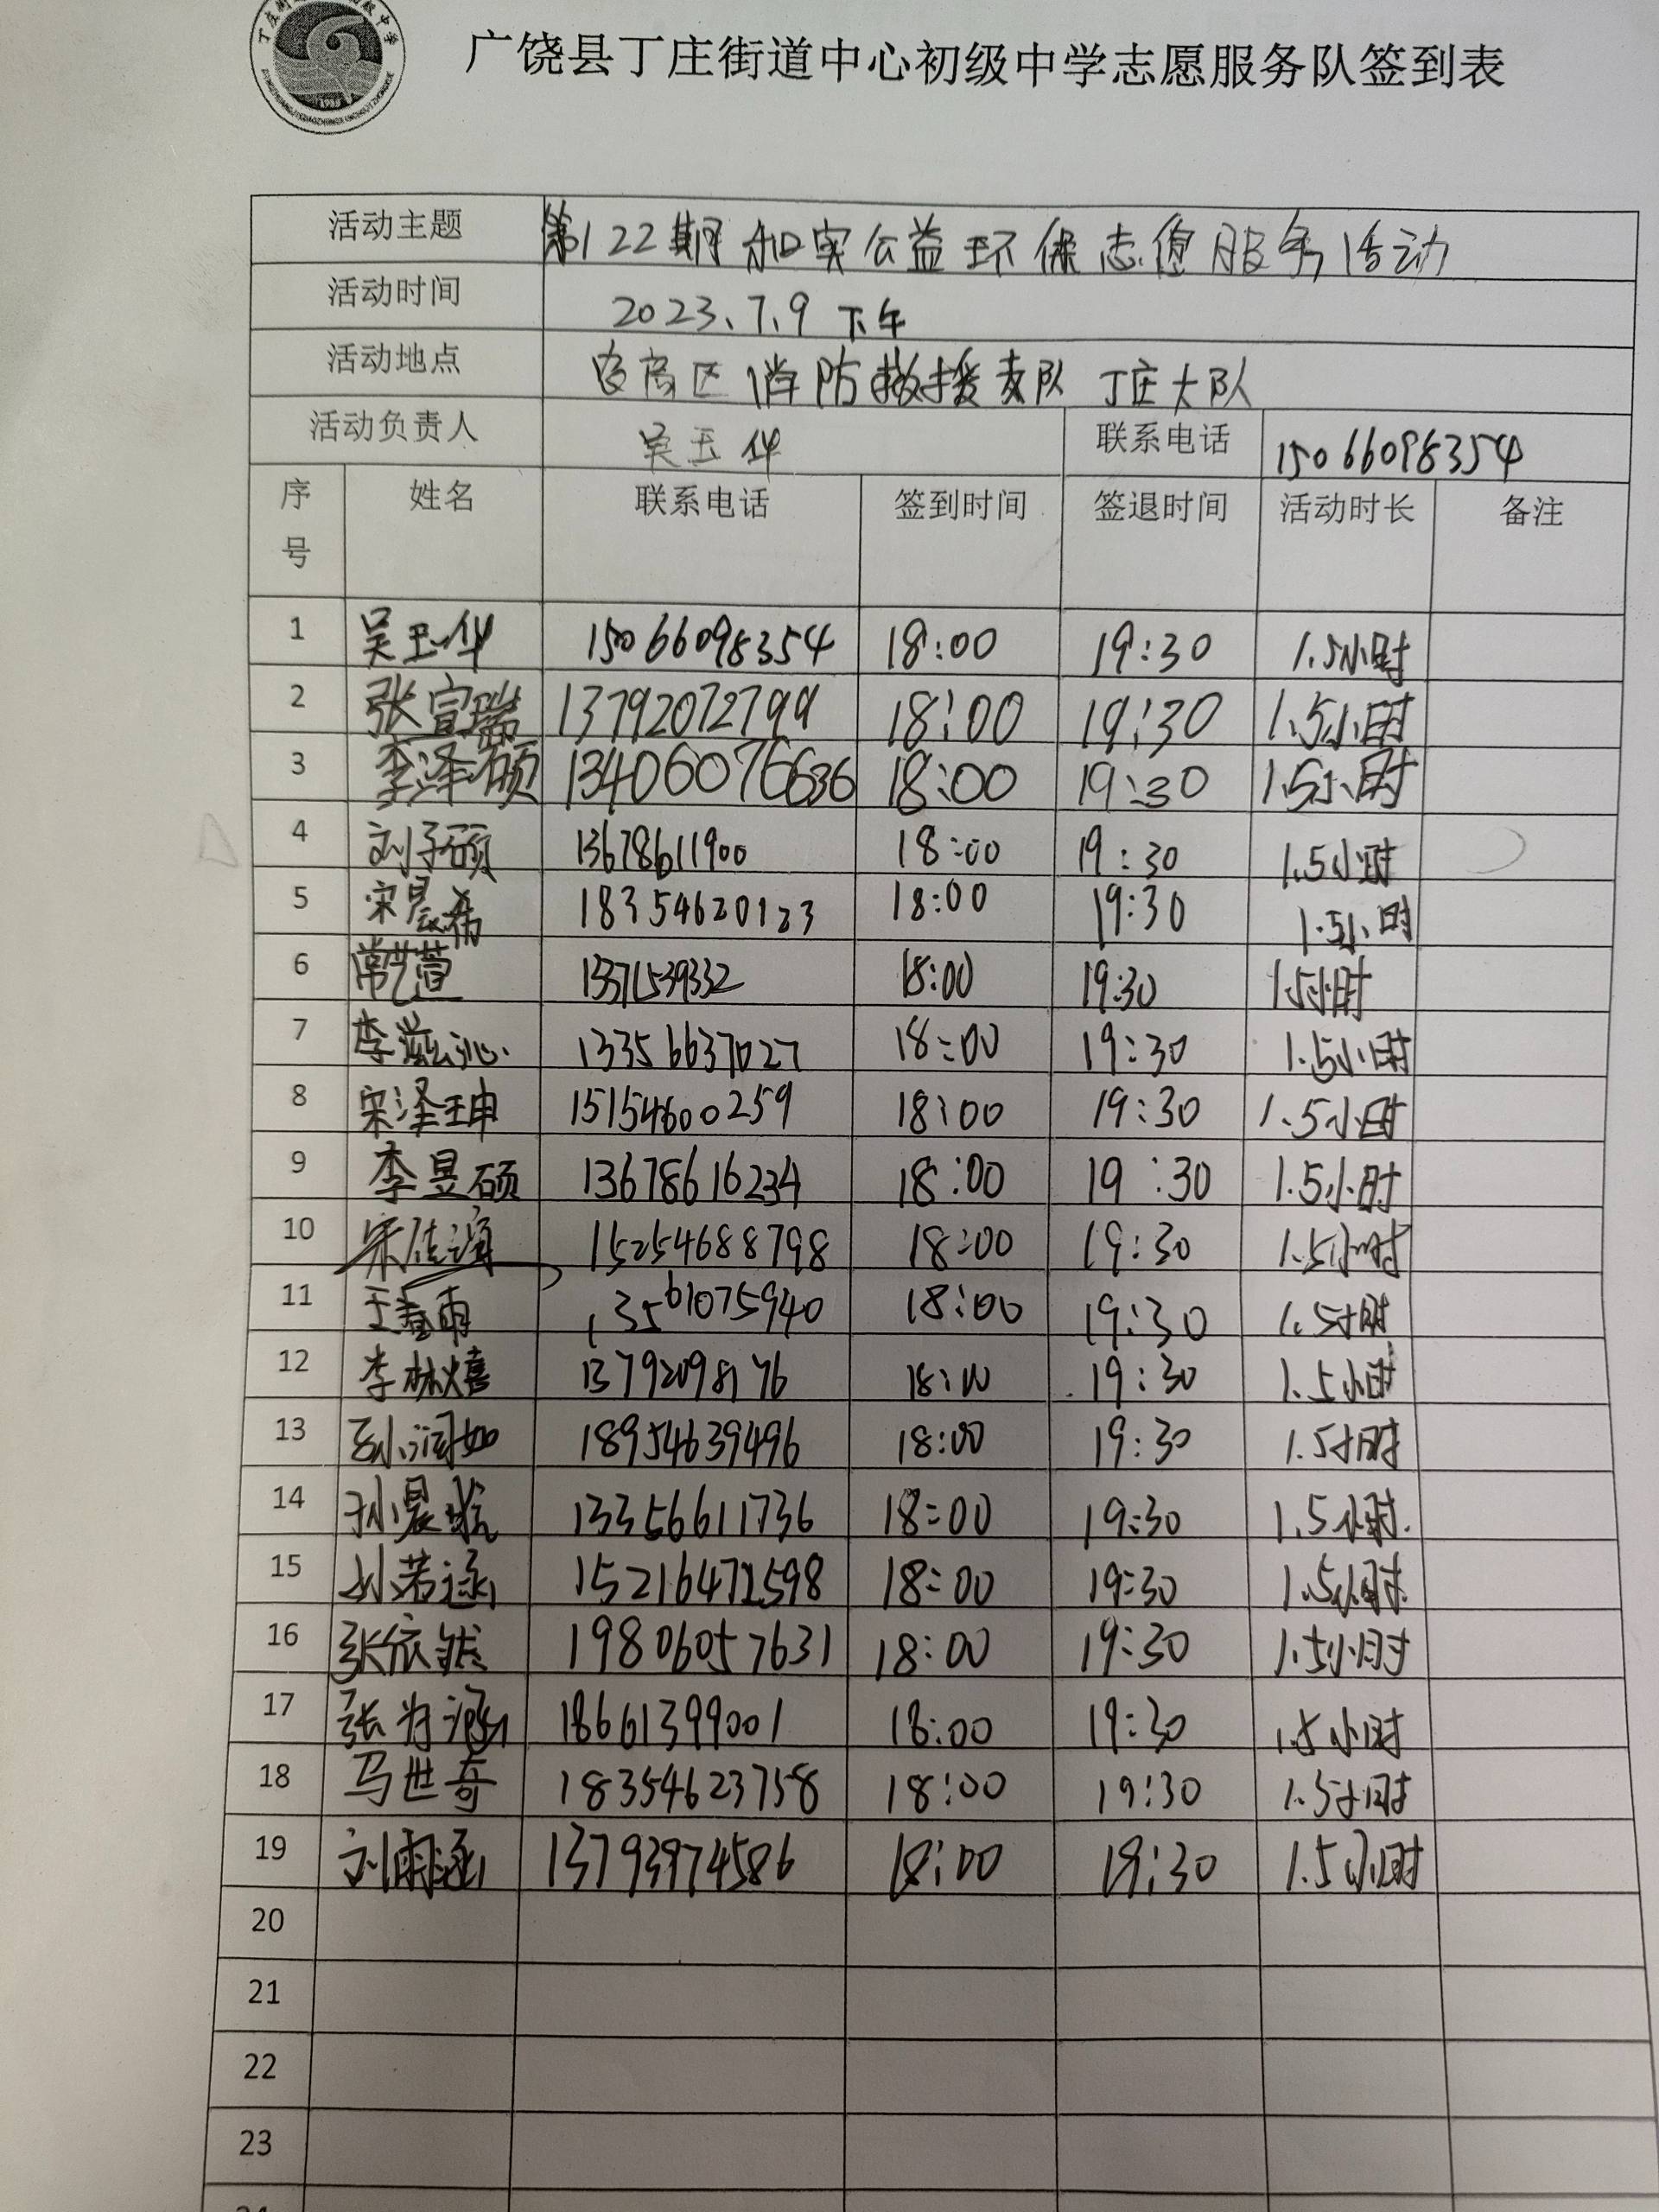 广饶县丁庄街道中心初级中学志愿服务队签到表
活动主题 第122期和实公益环保志愿服务活动
活动时间 2023、7、9 下午
活动地点 农高区消防救援支队 丁庄大队
活动负责人 吴玉华 联系电话 15066098354
序号 姓名 联系电话 签到时间 签退时间 活动时长 备注
1 吴玉华 15066098354 18:00 19:30 1.5小时
2 张宣瑞 13792072799 18:00 19:30 1.5小时
3 李泽硕 13406076636 18:00 19:30 1.5小时
4 刘子硕 13678611900 18:00 19:30 1.5小时
5 宋晨希 18354620123 18:00 19:30 1.5小时
6 常艺萱 18:00 19:30 1.5小时
7 李滋沁 13356637027 18:00 19:30 1.5小时
8 宋泽珅 15154600259 18:00 19:30 1.5小时
9 李昱硕 13678616234 18:00 19:30 1.5小时
10 宋佳 15254688798 18:00 19:30 1.5小时
11 王春雨 13561075940 18:00 19:30 1.5小时
12 李林熺 13792098176 18:00 19:30 1.5小时
13 孙润如 18954639496 18:00 19:30 1.5小时
14 孙晨航 13356611736 18:00 19:30 1.5小时.
15 刘若涵 15216472598 18:00 19:30 1.5小时.
16 张依然 19806057631 18:00 19:30 1.5小时
17 张 涵 18661399001 18:00 19:30 1.5小时
18 马世奇 18354623758 18:00 19:30 1.5小时
19 刘雨涵 13793974586 18:00 19:30 1.5小时
20
21
22
23